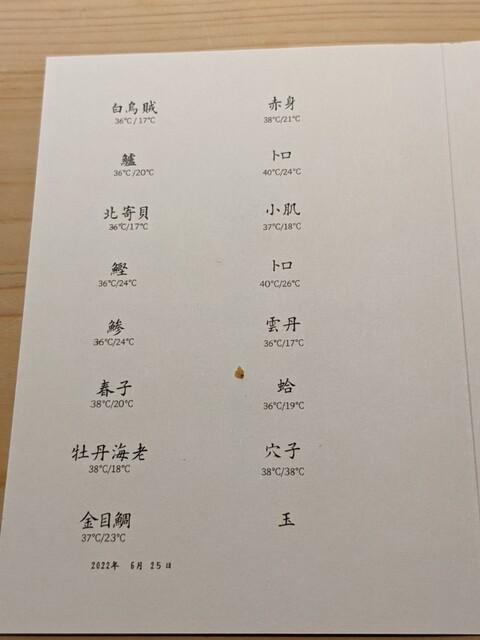 白烏賊
36℃/17℃
鱸
36℃/20℃
北寄貝
36℃/17℃
鰹
36℃/24℃
鯵
36℃/24℃
春子
38℃/20℃
牡丹海老
38℃/18℃
金目鯛
37℃/23℃
2022年 6月 25日
赤身
38℃/21℃
トロ
40℃/24℃
小肌
37℃/18℃
トロ
40℃/26℃
雲丹
36℃/17℃
蛤
36℃/19℃
穴子
38℃/38℃
玉